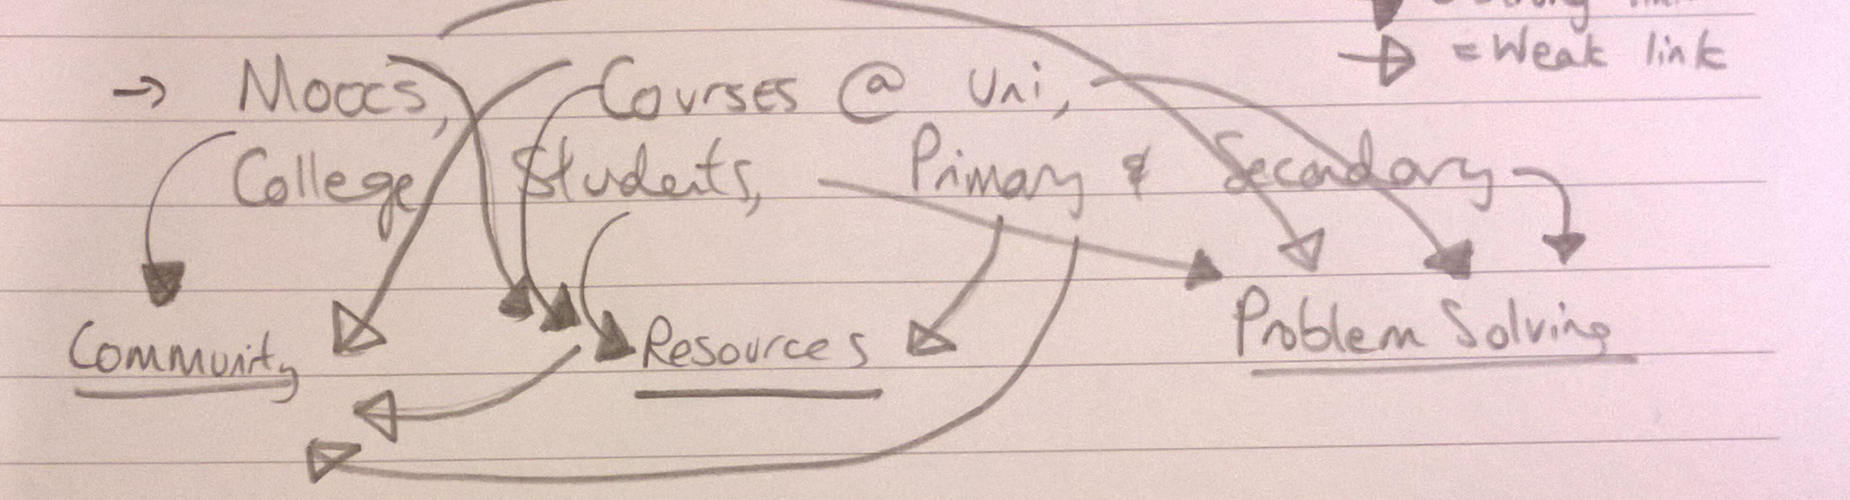 = Strong link
= Weak link
→ Moocs, Courses @ Uni,
College Students, Primary & Secondary
Community Resources Problem Solving